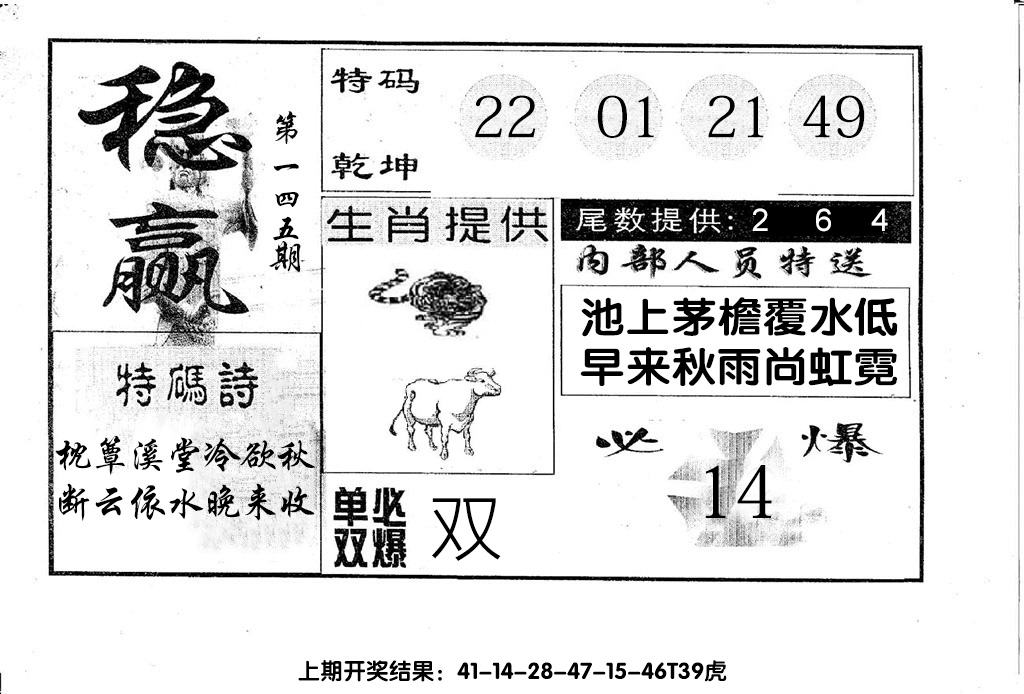 稳赢
第一四五期
特码
乾坤
22 01 21 49
生肖提供
尾数提供: 2 6 4
内部人员特送
池上茅檐覆水低
早来秋雨尚虹霓
特碼詩
枕簟溪堂冷欲秋
断云依水晚来收
单双必爆
双
必爆
14
上期开奖结果：41-14-28-47-15-46T39虎